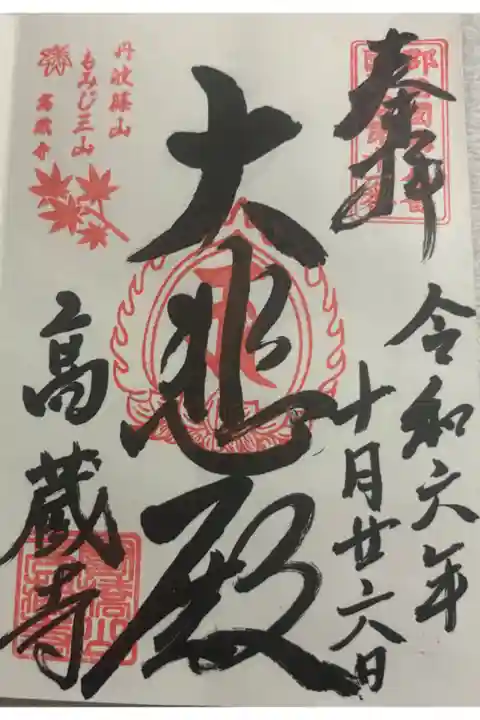 奉拝
令和六年
十月廿六日
大悲殿
丹波篠山
もみじ三山
高蔵寺
高蔵寺